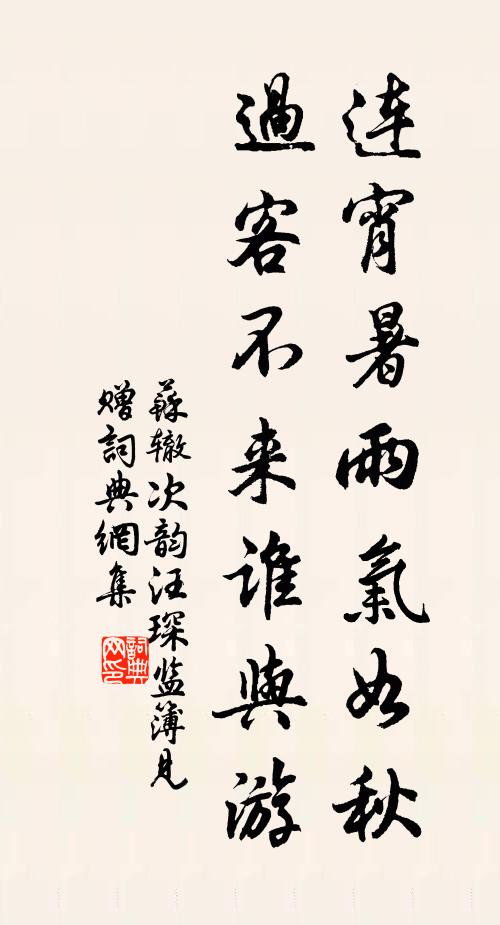 連宵暑雨氣如秋
過客不来誰與游
蘇辙次韵汪琛监簿見
赠詞典網集
詞典网印